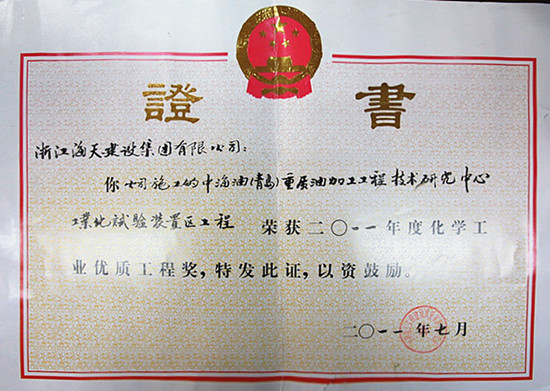 證書
浙江海天建设集团有限公司:
你公司施工的中海油(青岛)重质油加工工程技术研究中心
工业化试验装置区工程 荣获二〇一一年度化学工
业优质工程奖,特发此证,以资鼓励。
二〇一一年七月